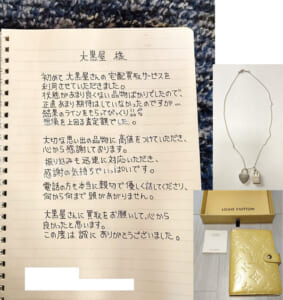 大黒屋 様
初めて大黒屋さんの宅配買取サービスを
利用させていただきました。
状態があまり良くない品物ばかりでしたので、
正直あまり期待はしていなかったのですが…
結果のラインをもらってびっくり!!
想像を上回る査定額でした。
大切な思い出の品物に高値をつけていただき、
心から感謝しております。
振り込みも迅速に対応いただき、
感謝の気持ちでいっぱいです。
電話の方も本当に親切で優しく話してくださり、
何から何まで頭があがりません。
大黒屋さんに買取をお願いして、心から
良かったと思います。
この度は誠にありがとうございました。
LOUIS VUITTON